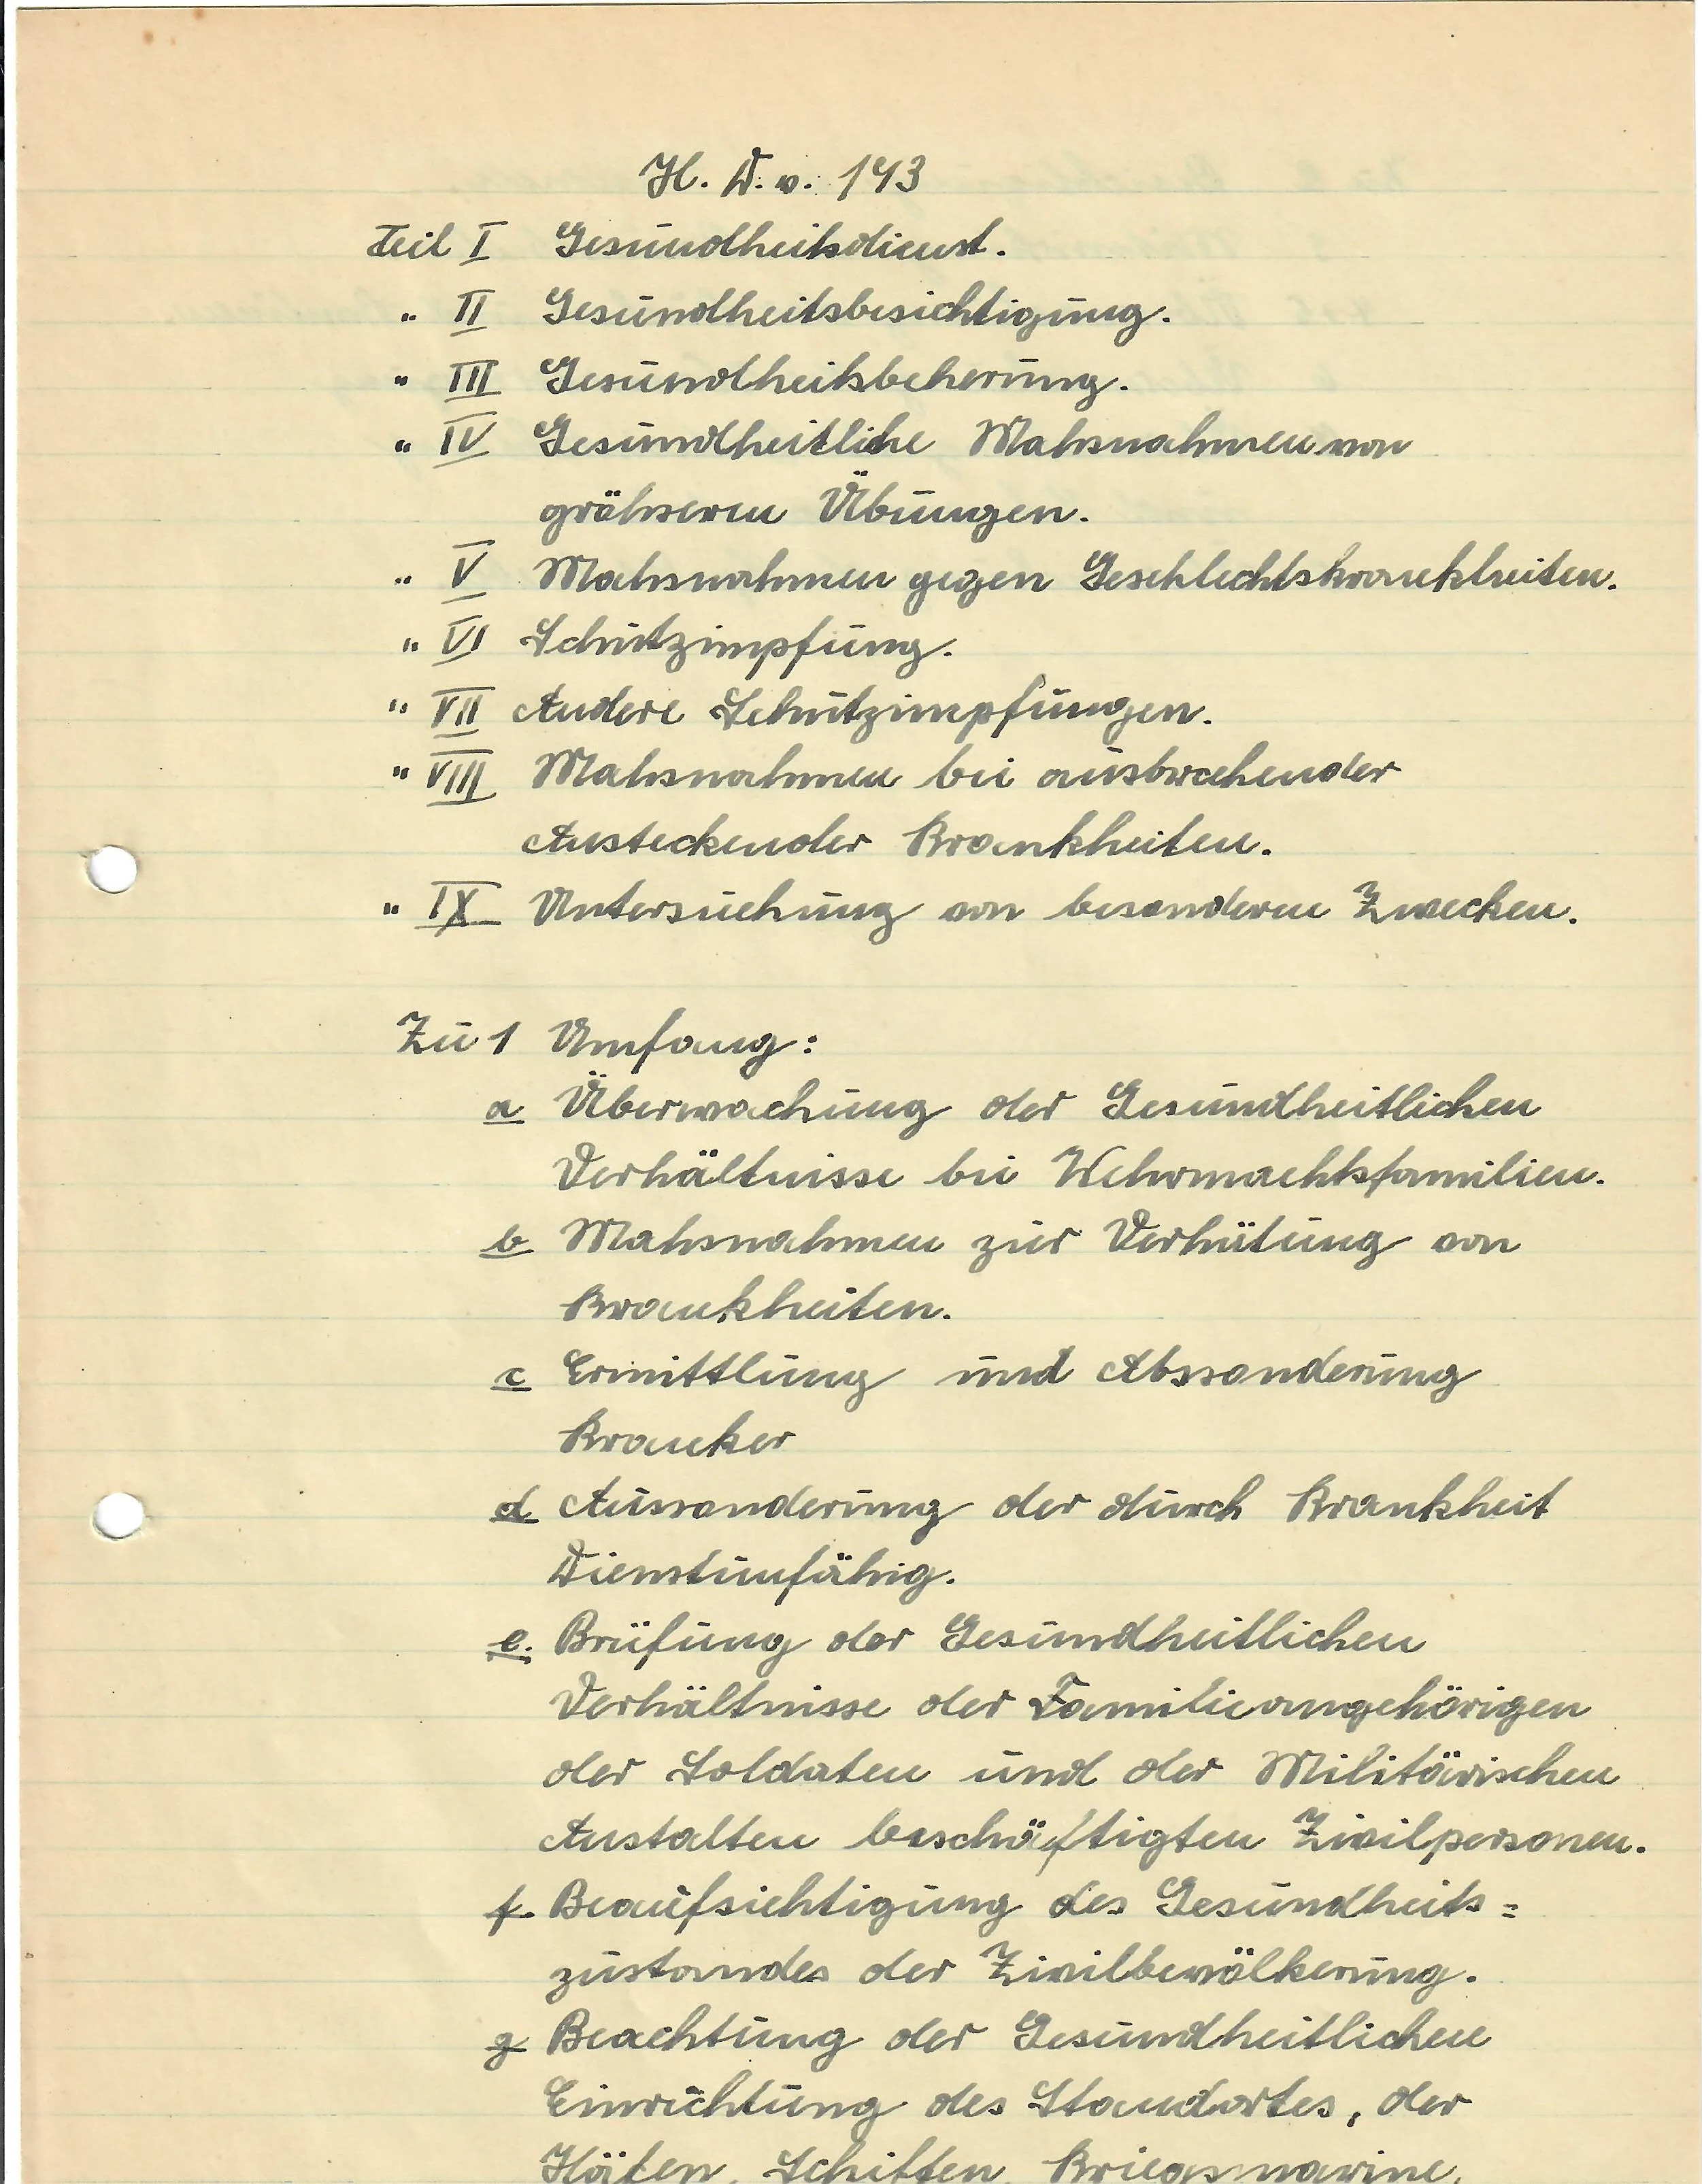 H. D. v. 193
Teil I Gesundheitsdienst.
" II Gesundheitsbesichtigung.
" III Gesundheitsbeherung.
" IV Gesundheitliche Mahsnahmen von
grähseren Übungen.
" V Mahsnahmen gegen Geschlechtskrankheiten.
" VI Schutzimpfung.
" VII Andere Schutzimpfungen.
" VIII Mahsnahmen bei ausbrechender
Ansteckender Krankheiten.
" IX Untersuchung von besonderen Zwecken.
Zu 1 Umfang:
a Überwachung der Gesundheitlichen
Verhältnisse bei Wehrmachtsfamilien.
b Mahsnahmen zur Verhütung von
Krankheiten.
c Ermittlung und Abssonderung
Krancker
d Aussonderung der durch Krankheit
Dienstunfähig.
e. Brüfung der Gesundheitlichen
Verhältnisse der Familieangehörigen
der Soldaten und der Militärischen
Anstalten beschäftigten Zivilpersonen.
f. Beaufsichtigung des Gesundheits=
zustandes der Zivilbevölkerung.
g Beachtung der Gesundheitlichen
Einrichtung des Standortes, der
Häfen, Schiffen, Kriegsmarine,